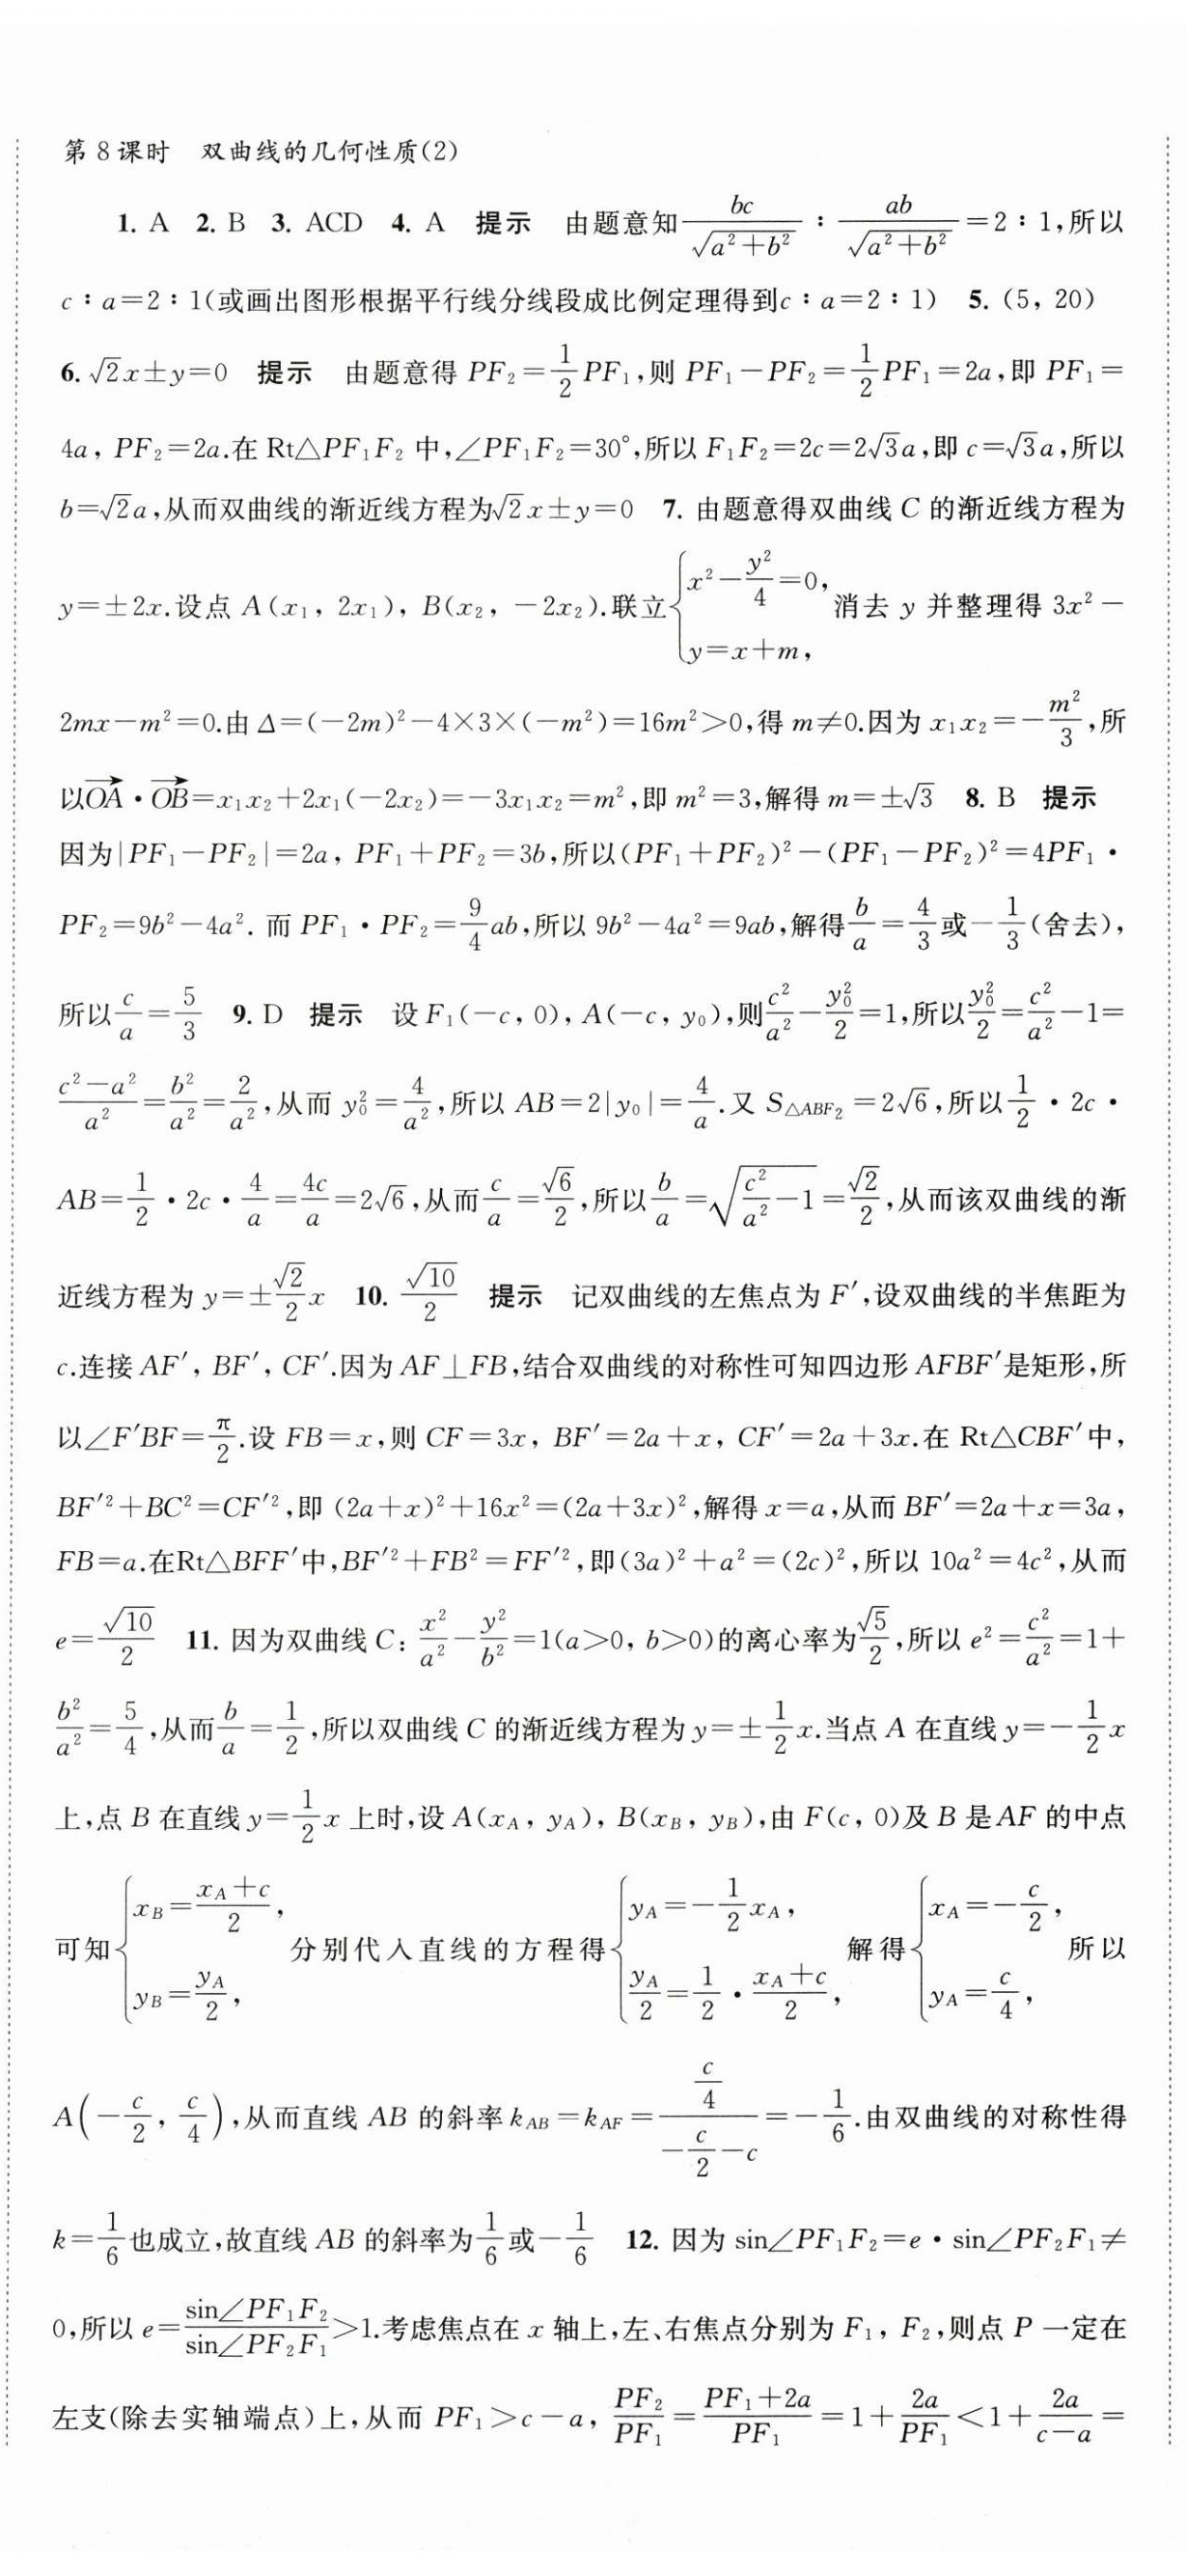 第8课时　双曲线的几何性质(2)
1. A　2. B　3. ACD　4. A　提示　由题意知$\frac{bc}{\sqrt{a^2+b^2}}:\frac{ab}{\sqrt{a^2+b^2}}=2:1$,所以
$c:a=2:1$(或画出图形根据平行线分线段成比例定理得到$c:a=2:1$)　5. (5, 20)
6. $\sqrt{2}x\pm y=0$　提示　由题意得 $PF_2=\frac{1}{2}PF_1$,则 $PF_1-PF_2=\frac{1}{2}PF_1=2a$,即 $PF_1=$
$4a$, $PF_2=2a$.在 Rt△$PF_1F_2$ 中,∠$PF_1F_2=30°$,所以 $F_1F_2=2c=2\sqrt{3}a$,即 $c=\sqrt{3}a$,所以
$b=\sqrt{2}a$,从而双曲线的渐近线方程为$\sqrt{2}x\pm y=0$　7. 由题意得双曲线 C 的渐近线方程为
$y=\pm 2x$.设点 $A(x_1, 2x_1)$, $B(x_2, -2x_2)$.联立$\begin{cases}x^2-\frac{y^2}{4}=0,\\y=x+m,\end{cases}$消去 y 并整理得 $3x^2-$
$2mx-m^2=0$.由 $\Delta=(-2m)^2-4\times3\times(-m^2)=16m^2>0$,得 $m\neq0$.因为 $x_1x_2=-\frac{m^2}{3}$,所
以$\overrightarrow{OA}\cdot\overrightarrow{OB}=x_1x_2+2x_1(-2x_2)=-3x_1x_2=m^2$,即 $m^2=3$,解得 $m=\pm\sqrt{3}$　8. B　提示
因为$|PF_1-PF_2|=2a$, $PF_1+PF_2=3b$,所以$(PF_1+PF_2)^2-(PF_1-PF_2)^2=4PF_1\cdot$
$PF_2=9b^2-4a^2$. 而 $PF_1\cdot PF_2=\frac{9}{4}ab$,所以 $9b^2-4a^2=9ab$,解得$\frac{b}{a}=\frac{4}{3}$或$-\frac{1}{3}$(舍去),
所以$\frac{c}{a}=\frac{5}{3}$　9. D　提示　设 $F_1(-c, 0)$, $A(-c, y_0)$,则$\frac{c^2}{a^2}-\frac{y_0^2}{2}=1$,所以$\frac{y_0^2}{2}=\frac{c^2}{a^2}-1=$
$\frac{c^2-a^2}{a^2}=\frac{b^2}{a^2}=\frac{2}{a^2}$,从而 $y_0^2=\frac{4}{a^2}$,所以 $AB=2|y_0|=\frac{4}{a}$.又 $S_{△ABF_2}=2\sqrt{6}$,所以$\frac{1}{2}\cdot2c\cdot$
$AB=\frac{1}{2}\cdot2c\cdot\frac{4}{a}=\frac{4c}{a}=2\sqrt{6}$,从而$\frac{c}{a}=\frac{\sqrt{6}}{2}$,所以$\frac{b}{a}=\sqrt{\frac{c^2}{a^2}-1}=\frac{\sqrt{2}}{2}$,从而该双曲线的渐
近线方程为 $y=\pm\frac{\sqrt{2}}{2}x$　10. $\frac{\sqrt{10}}{2}$　提示　记双曲线的左焦点为 $F'$,设双曲线的半焦距为
c.连接 $AF'$, $BF'$, $CF'$.因为 $AF\perp FB$,结合双曲线的对称性可知四边形 $AFBF'$是矩形,所
以∠$F'BF=\frac{\pi}{2}$.设 $FB=x$,则 $CF=3x$, $BF'=2a+x$, $CF'=2a+3x$.在 Rt△$CBF'$中,
$BF'^2+BC^2=CF'^2$,即 $(2a+x)^2+16x^2=(2a+3x)^2$,解得 $x=a$,从而 $BF'=2a+x=3a$,
$FB=a$.在Rt△$BFF'$中,$BF'^2+FB^2=FF'^2$,即$(3a)^2+a^2=(2c)^2$,所以 $10a^2=4c^2$,从而
$e=\frac{\sqrt{10}}{2}$　11. 因为双曲线 C: $\frac{x^2}{a^2}-\frac{y^2}{b^2}=1(a>0, b>0)$的离心率为$\frac{\sqrt{5}}{2}$,所以 $e^2=\frac{c^2}{a^2}=1+$
$\frac{b^2}{a^2}=\frac{5}{4}$,从而$\frac{b}{a}=\frac{1}{2}$,所以双曲线 C 的渐近线方程为 $y=\pm\frac{1}{2}x$.当点 A 在直线 $y=-\frac{1}{2}x$
上,点 B 在直线 $y=\frac{1}{2}x$ 上时,设 $A(x_A, y_A)$, $B(x_B, y_B)$,由 $F(c, 0)$及 B 是 AF 的中点
可知$\begin{cases}x_B=\frac{x_A+c}{2},\\y_B=\frac{y_A}{2},\end{cases}$分别代入直线的方程得$\begin{cases}y_A=-\frac{1}{2}x_A,\\\frac{y_A}{2}=\frac{1}{2}\cdot\frac{x_A+c}{2},\end{cases}$解得$\begin{cases}x_A=-\frac{c}{2},\\y_A=\frac{c}{4},\end{cases}$所以
$A\left(-\frac{c}{2}, \frac{c}{4}\right)$,从而直线 AB 的斜率 $k_{AB}=k_{AF}=\frac{\frac{c}{4}}{-\frac{c}{2}-c}=-\frac{1}{6}$.由双曲线的对称性得
$k=\frac{1}{6}$也成立,故直线 AB 的斜率为$\frac{1}{6}$或$-\frac{1}{6}$　12. 因为 $\sin∠PF_1F_2=e\cdot\sin∠PF_2F_1\neq$
0,所以 $e=\frac{\sin∠PF_1F_2}{\sin∠PF_2F_1}>1$.考虑焦点在 x 轴上,左、右焦点分别为 $F_1$, $F_2$,则点 P 一定在
左支(除去实轴端点)上,从而 $PF_1>c-a$, $\frac{PF_2}{PF_1}=\frac{PF_1+2a}{PF_1}=1+\frac{2a}{PF_1}<1+\frac{2a}{c-a}=$